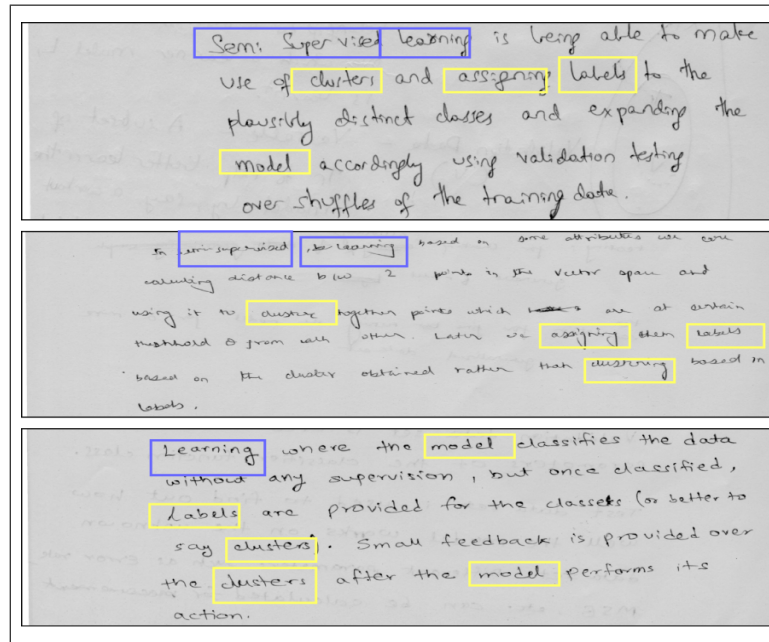 Semi Supervised learning is being able to make
use of clusters and assigning labels to the
plausibly distinct classes and expanding the
model accordingly using validation testing
over shuffles of the training data.
In semi-supervised learning based on some attributes we are
calculating distance b/w 2 points in the vector space and
using it to cluster together points which are at certain
threshhold θ from each other. Later we assigning them labels
based on the cluster obtained rather than clustering based on
labels.
Learning where the model classifies the data
without any supervision, but once classified,
Labels are provided for the classes (or better to
say clusters). Small feedback is provided over
the clusters after the model performs its
action.